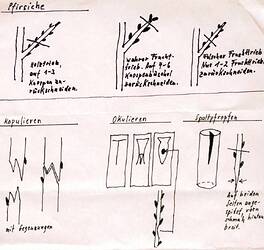 Pfirsiche
Holztrieb,
auf 1-2
Knospen zu-
rückschneiden.
Wahrer Frucht-
trieb. Auf 4-6
Knospenbüschel
zurückschneiden.
Falscher Fruchttrieb
Nur 1-2 Fruchttrieb
zurückschneiden.
Kopulieren
mit Gegenzungen
Okulieren
Spaltpfropfen
Auf beiden
Seiten ange-
spitzt, vorn
schmal, hinten
breit.